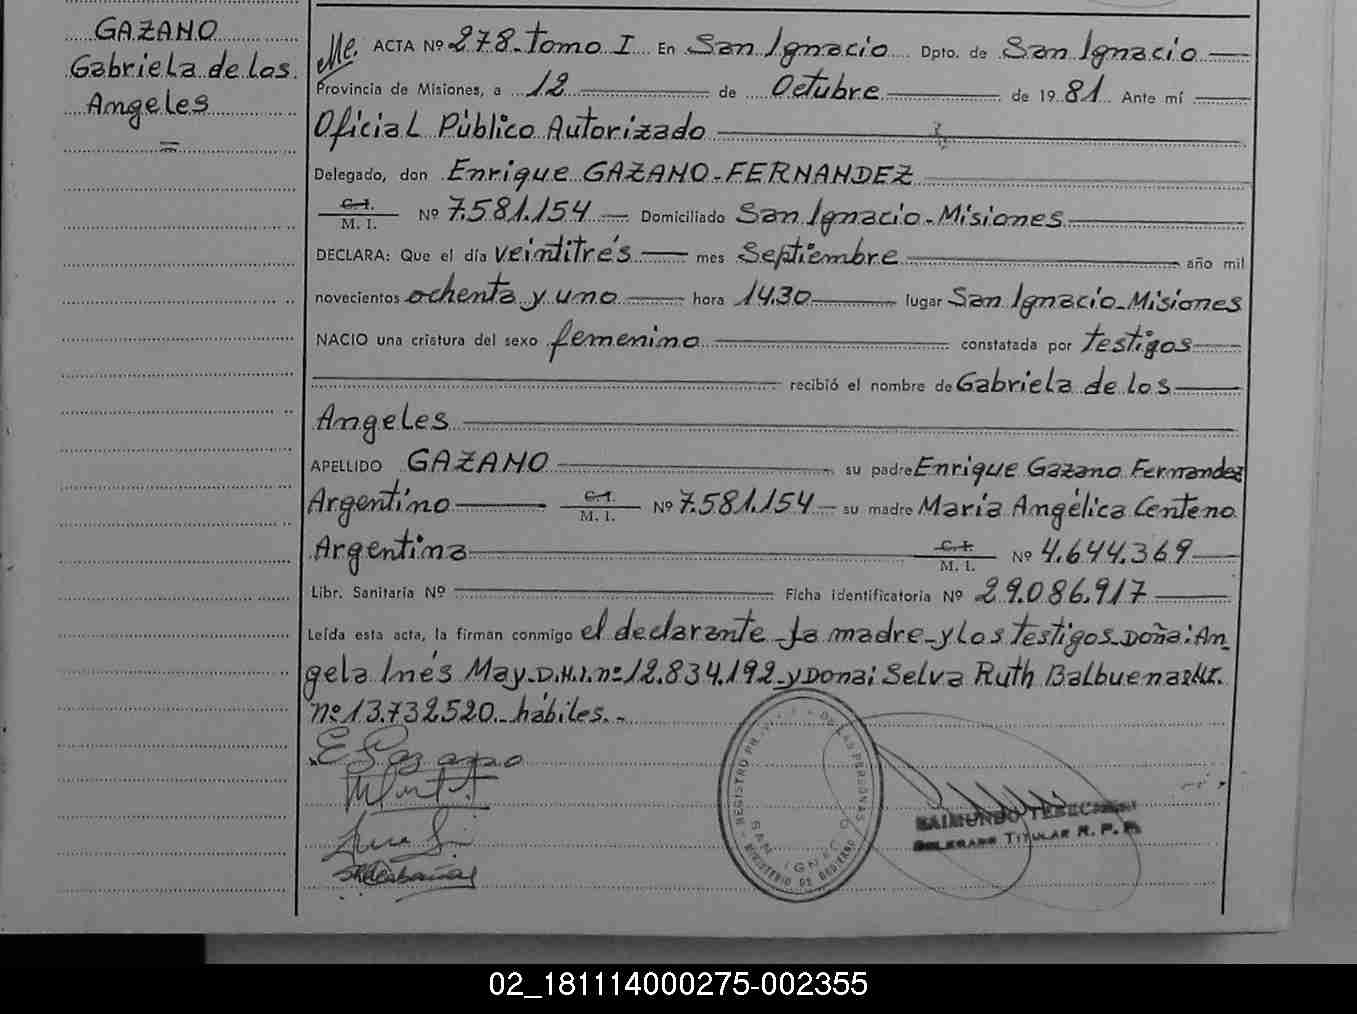 GAZANO
Gabriela de los
Angeles
=
Me. ACTA Nº 278. Tomo I En San Ignacio Dpto. de San Ignacio
Provincia de Misiones, a 12 de Octubre de 1981 Ante mí
Oficial Público Autorizado
Delegado, don Enrique GAZANO-FERNANDEZ
C. I. M. I. Nº 7.581.154 Domiciliado San Ignacio-Misiones
DECLARA: Que el día veintitrés mes Septiembre año mil
novecientos ochenta y uno hora 14.30 lugar San Ignacio-Misiones
NACIO una criatura del sexo femenino constatada por testigos
recibió el nombre de Gabriela de los
Angeles
APELLIDO GAZANO su padre Enrique Gazano Fernandez
Argentino C. I. M. I. Nº 7.581.154 su madre María Angélica Centeno
Argentina C. I. M. I. Nº 4.644.369
Libr. Sanitaria Nº Ficha identificatoria Nº 29.086.917
Leída esta acta, la firman conmigo el declarante-la madre-y los testigos-Doña: An_
gela Inés May-D.N.I. nº 12.834.192-y Dona; Selva Ruth Balbuena
nº 13.732520.-hábiles.-
E Gazano
REGISTRO DE LAS PERSONAS
SAN IGNACIO
MINISTERIO DE GOBIERNO
RAIMUNDO
DELEGADO TITULAR R. P. P.
02_181114000275-002355